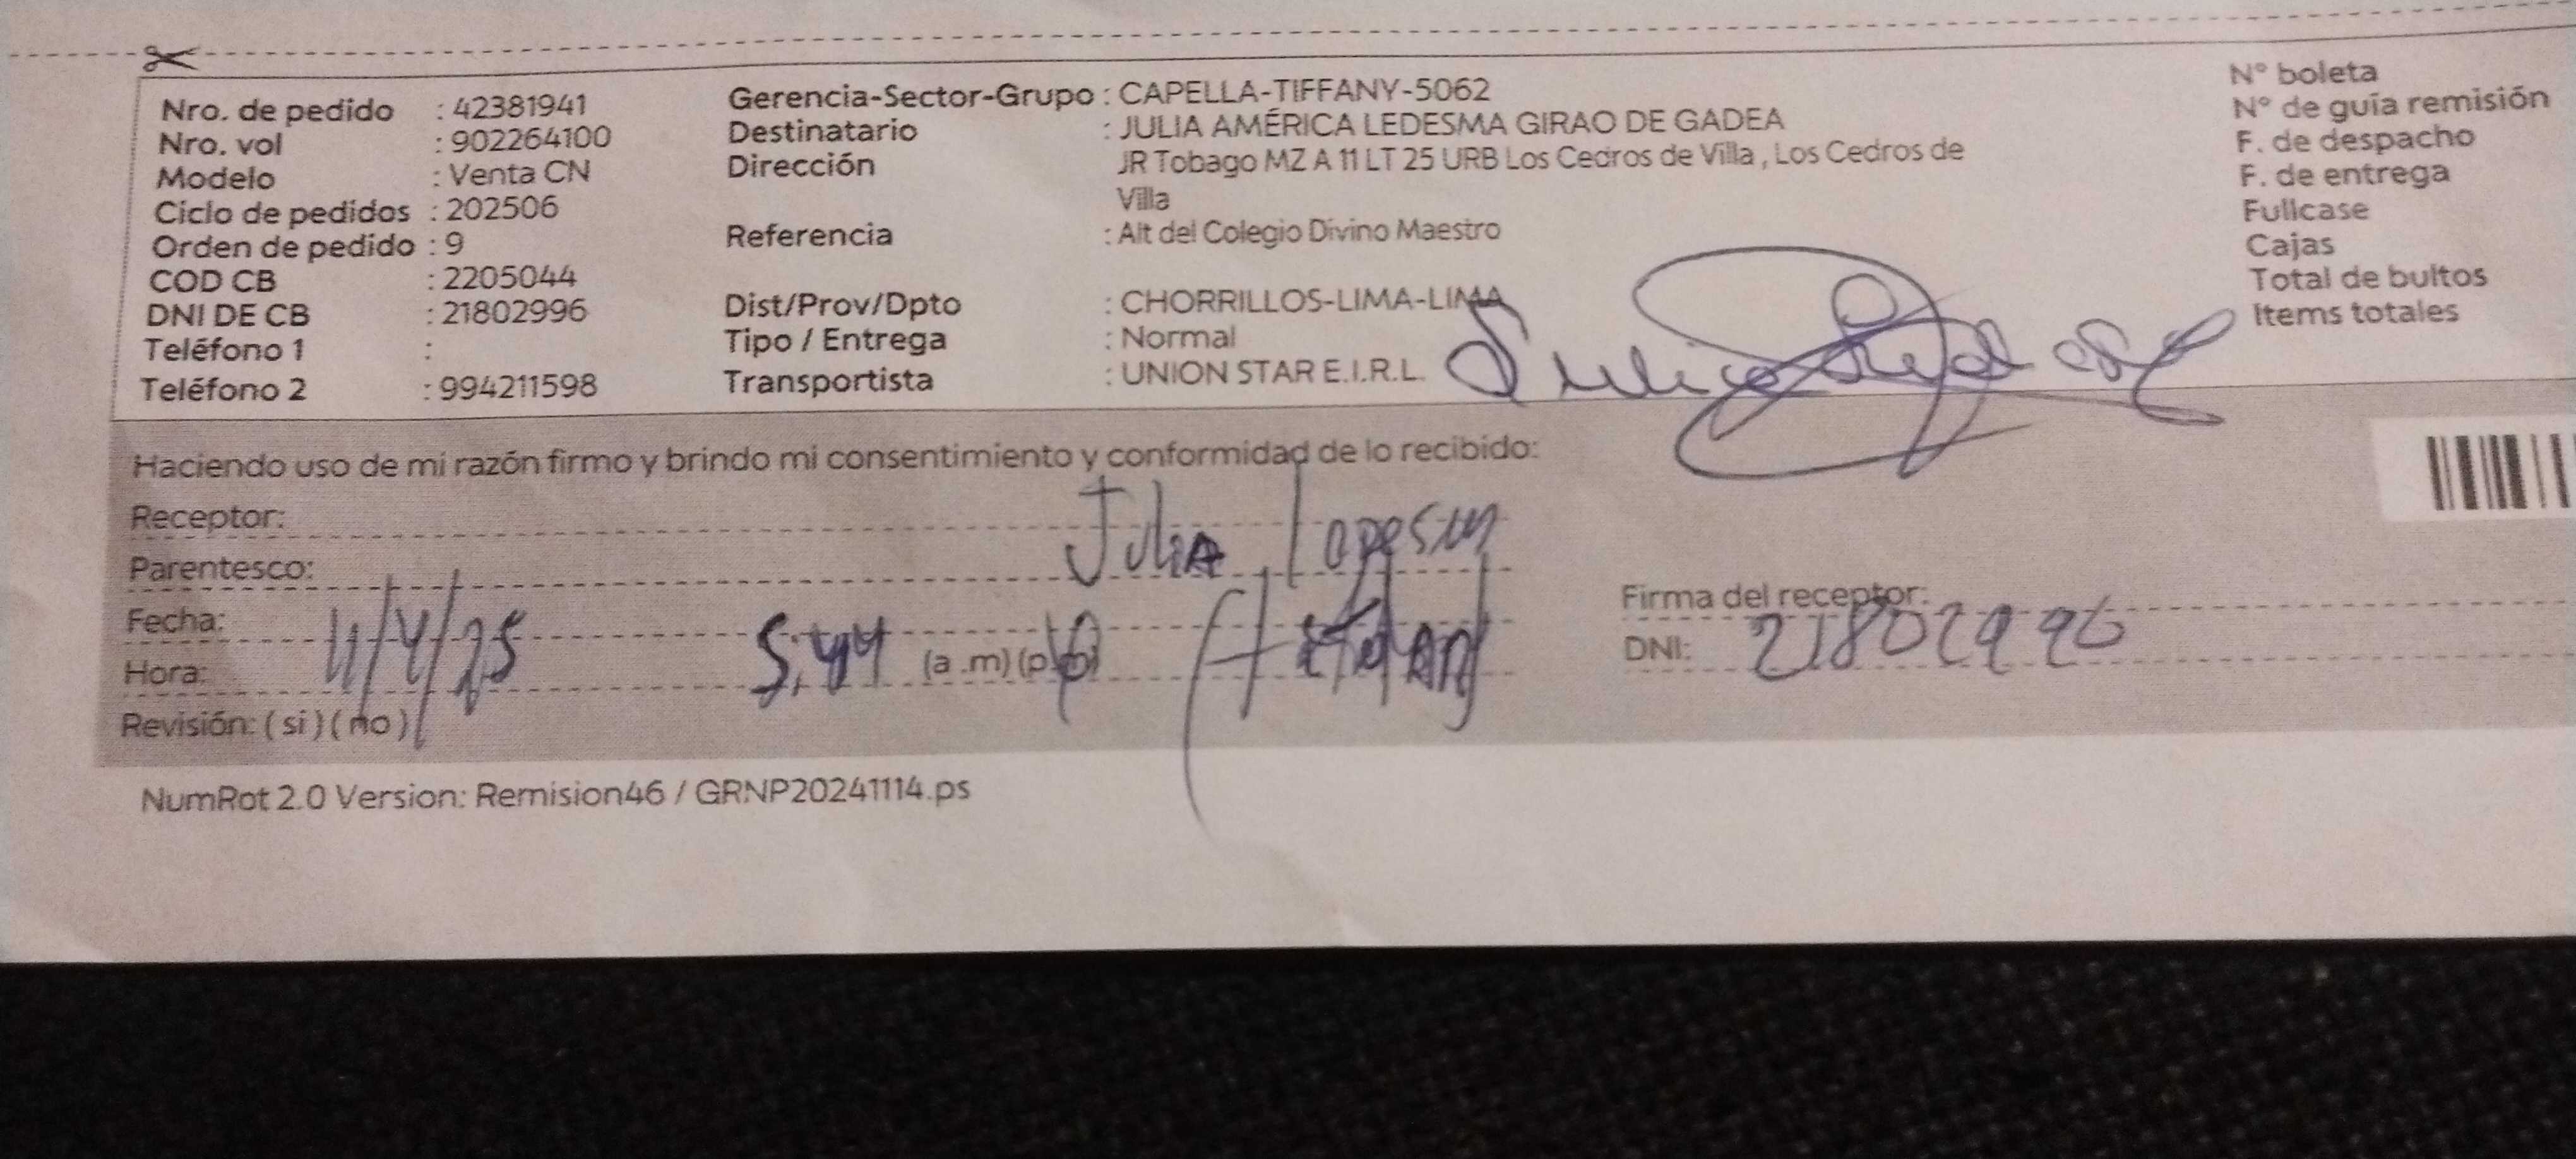 Nro. de pedido : 42381941
Nro. vol : 902264100
Modelo : Venta CN
Ciclo de pedidos : 202506
Orden de pedido : 9
COD CB : 2205044
DNI DE CB : 21802996
Teléfono 1 :
Teléfono 2 : 994211598
Gerencia-Sector-Grupo : CAPELLA-TIFFANY-5062
Destinatario : JULIA AMÉRICA LEDESMA GIRAO DE GADEA
Dirección JR Tobago MZ A 11 LT 25 URB Los Cedros de Villa , Los Cedros de
Villa
Referencia : Alt del Colegio Divino Maestro
Dist/Prov/Dpto : CHORRILLOS-LIMA-LIMA
Tipo / Entrega : Normal
Transportista : UNION STAR E.I.R.L.
N° boleta
N° de guía remisión
F. de despacho
F. de entrega
Fullcase
Cajas
Total de bultos
Items totales
Haciendo uso de mi razón firmo y brindo mi consentimiento y conformidad de lo recibido:
Receptor: Julia
Parentesco:
Fecha: 11/4/25
Hora: 5:44 (a .m) (p.m)
Revisión: ( si ) ( no )
Firma del receptor:
DNI: 21802996
NumRot 2.0 Version: Remision46 / GRNP20241114.ps